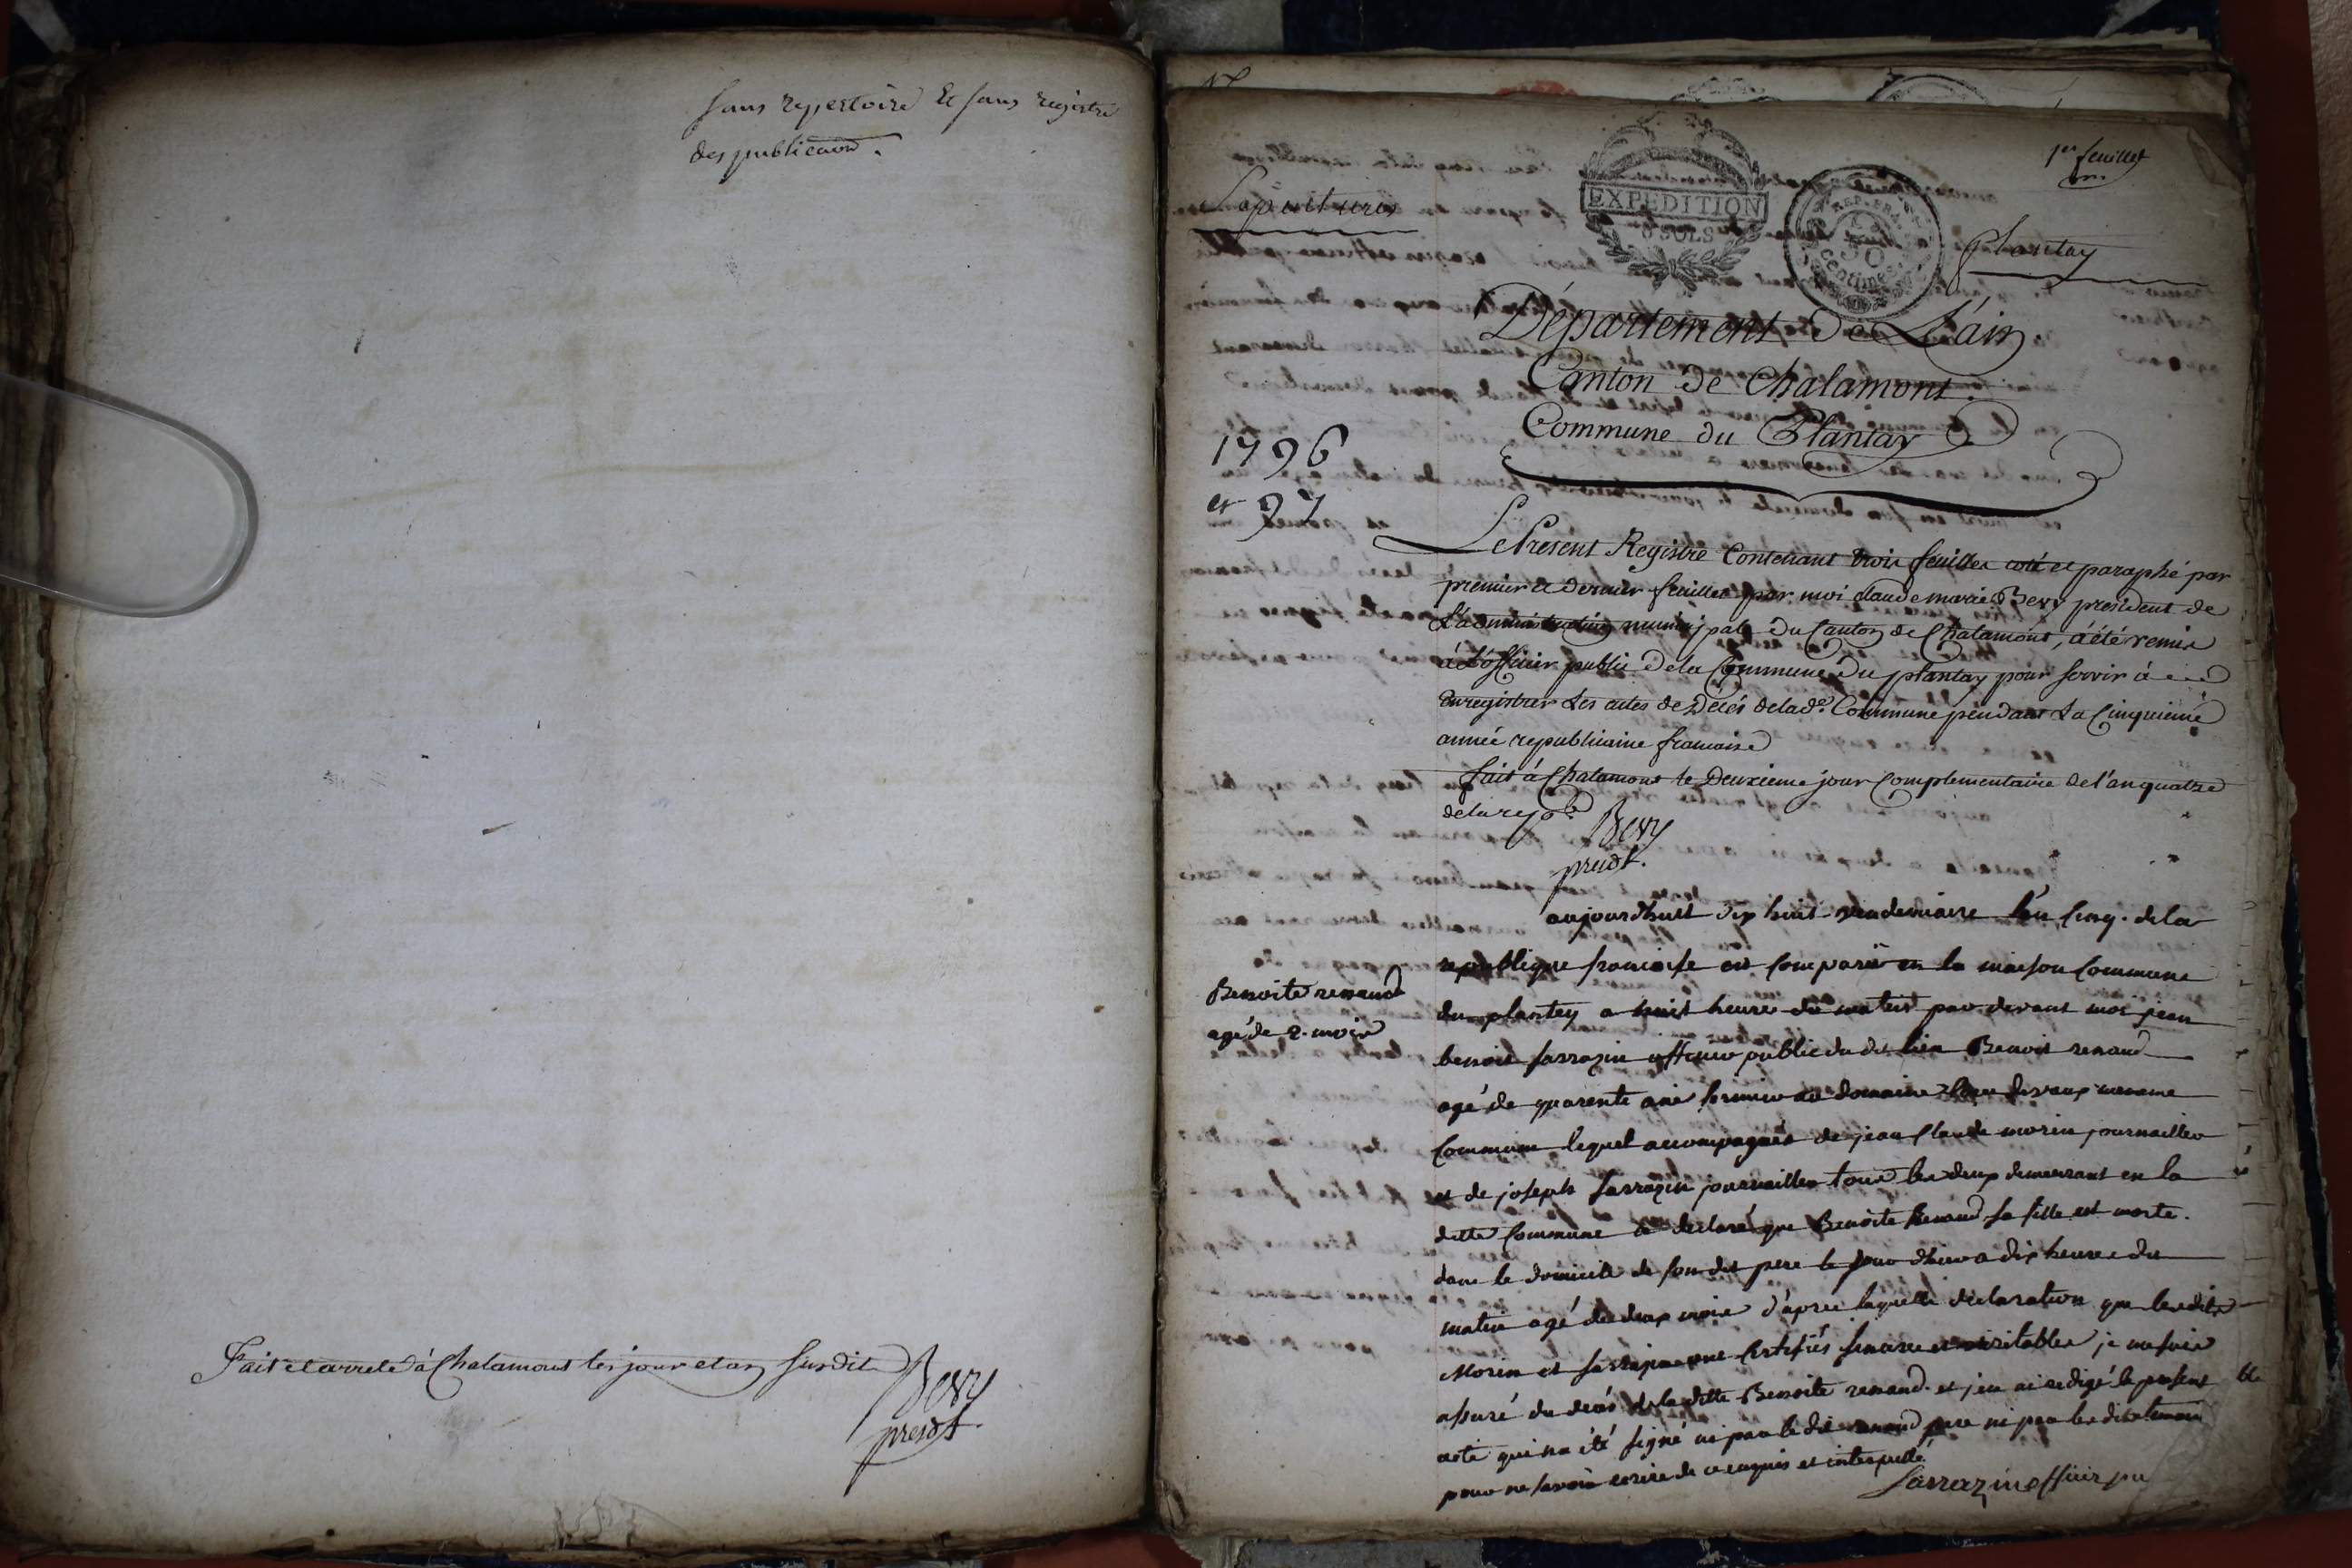 sans repertoire Et sans registre
des publicaon.
Fait et arreté à Chalamont les jour et an susdit
Bevy
presdt.
1er feuillet
Sepultures
EXPEDITION
6 SOLS
REP. FRA.
50
centimes
Plantay
Département de L'ain
Canton de Chalamont.
Commune du Plantay
1796
et 97
Le Present Registre Contenant trois feuilles coté et paraphé par
premier et dernier feuillet par moi claude marie Bevy president de
L'administration municipale du Canton de Chalamont, à été remis
à L'officier public de la Commune du plantay pour servir à
Enregistrer Les actes de Décés de lade. Commune pendant La Cinquieme
année republicaine francaise
fait à Chalamont le Deuxieme jour Complementaire de l'an quatre
de la rep.
Bevy
presdt.
aujourdhuit dix huit vendemiaire l'an cinq. de la
republique francoise est comparû en la maison commune
du plantey a huit heure du matin par devant moi jean
benoit sarrazin officier public du dit lieu Benoit renaud
Benoite renaud
agé de 2. mois
agé de quarente ans fermier au domaine meme
commune lequel accompagnés de jean Claude morin journaillier
et de joseph sarrazin journaillier tous les deux demeurant en la
ditte commune à declaré que Benoite Renaud sa fille est morte.
dans le domicile de son dit pere le jour dhier a dix heures du
matin agé de deux mois d'apres laquelle declaration que lesdits
Morin et sarrazin mont certifiés sincere et veritables je me suis
assuré du decés de la ditte Benoite renaud. et j'en ai redigé le present
acte qui na été signé ni par le dit renaud pere ni par lesdits temoin
pour ne savoir ecrire de ce enquis et interpellé
Sarrazin officier pu